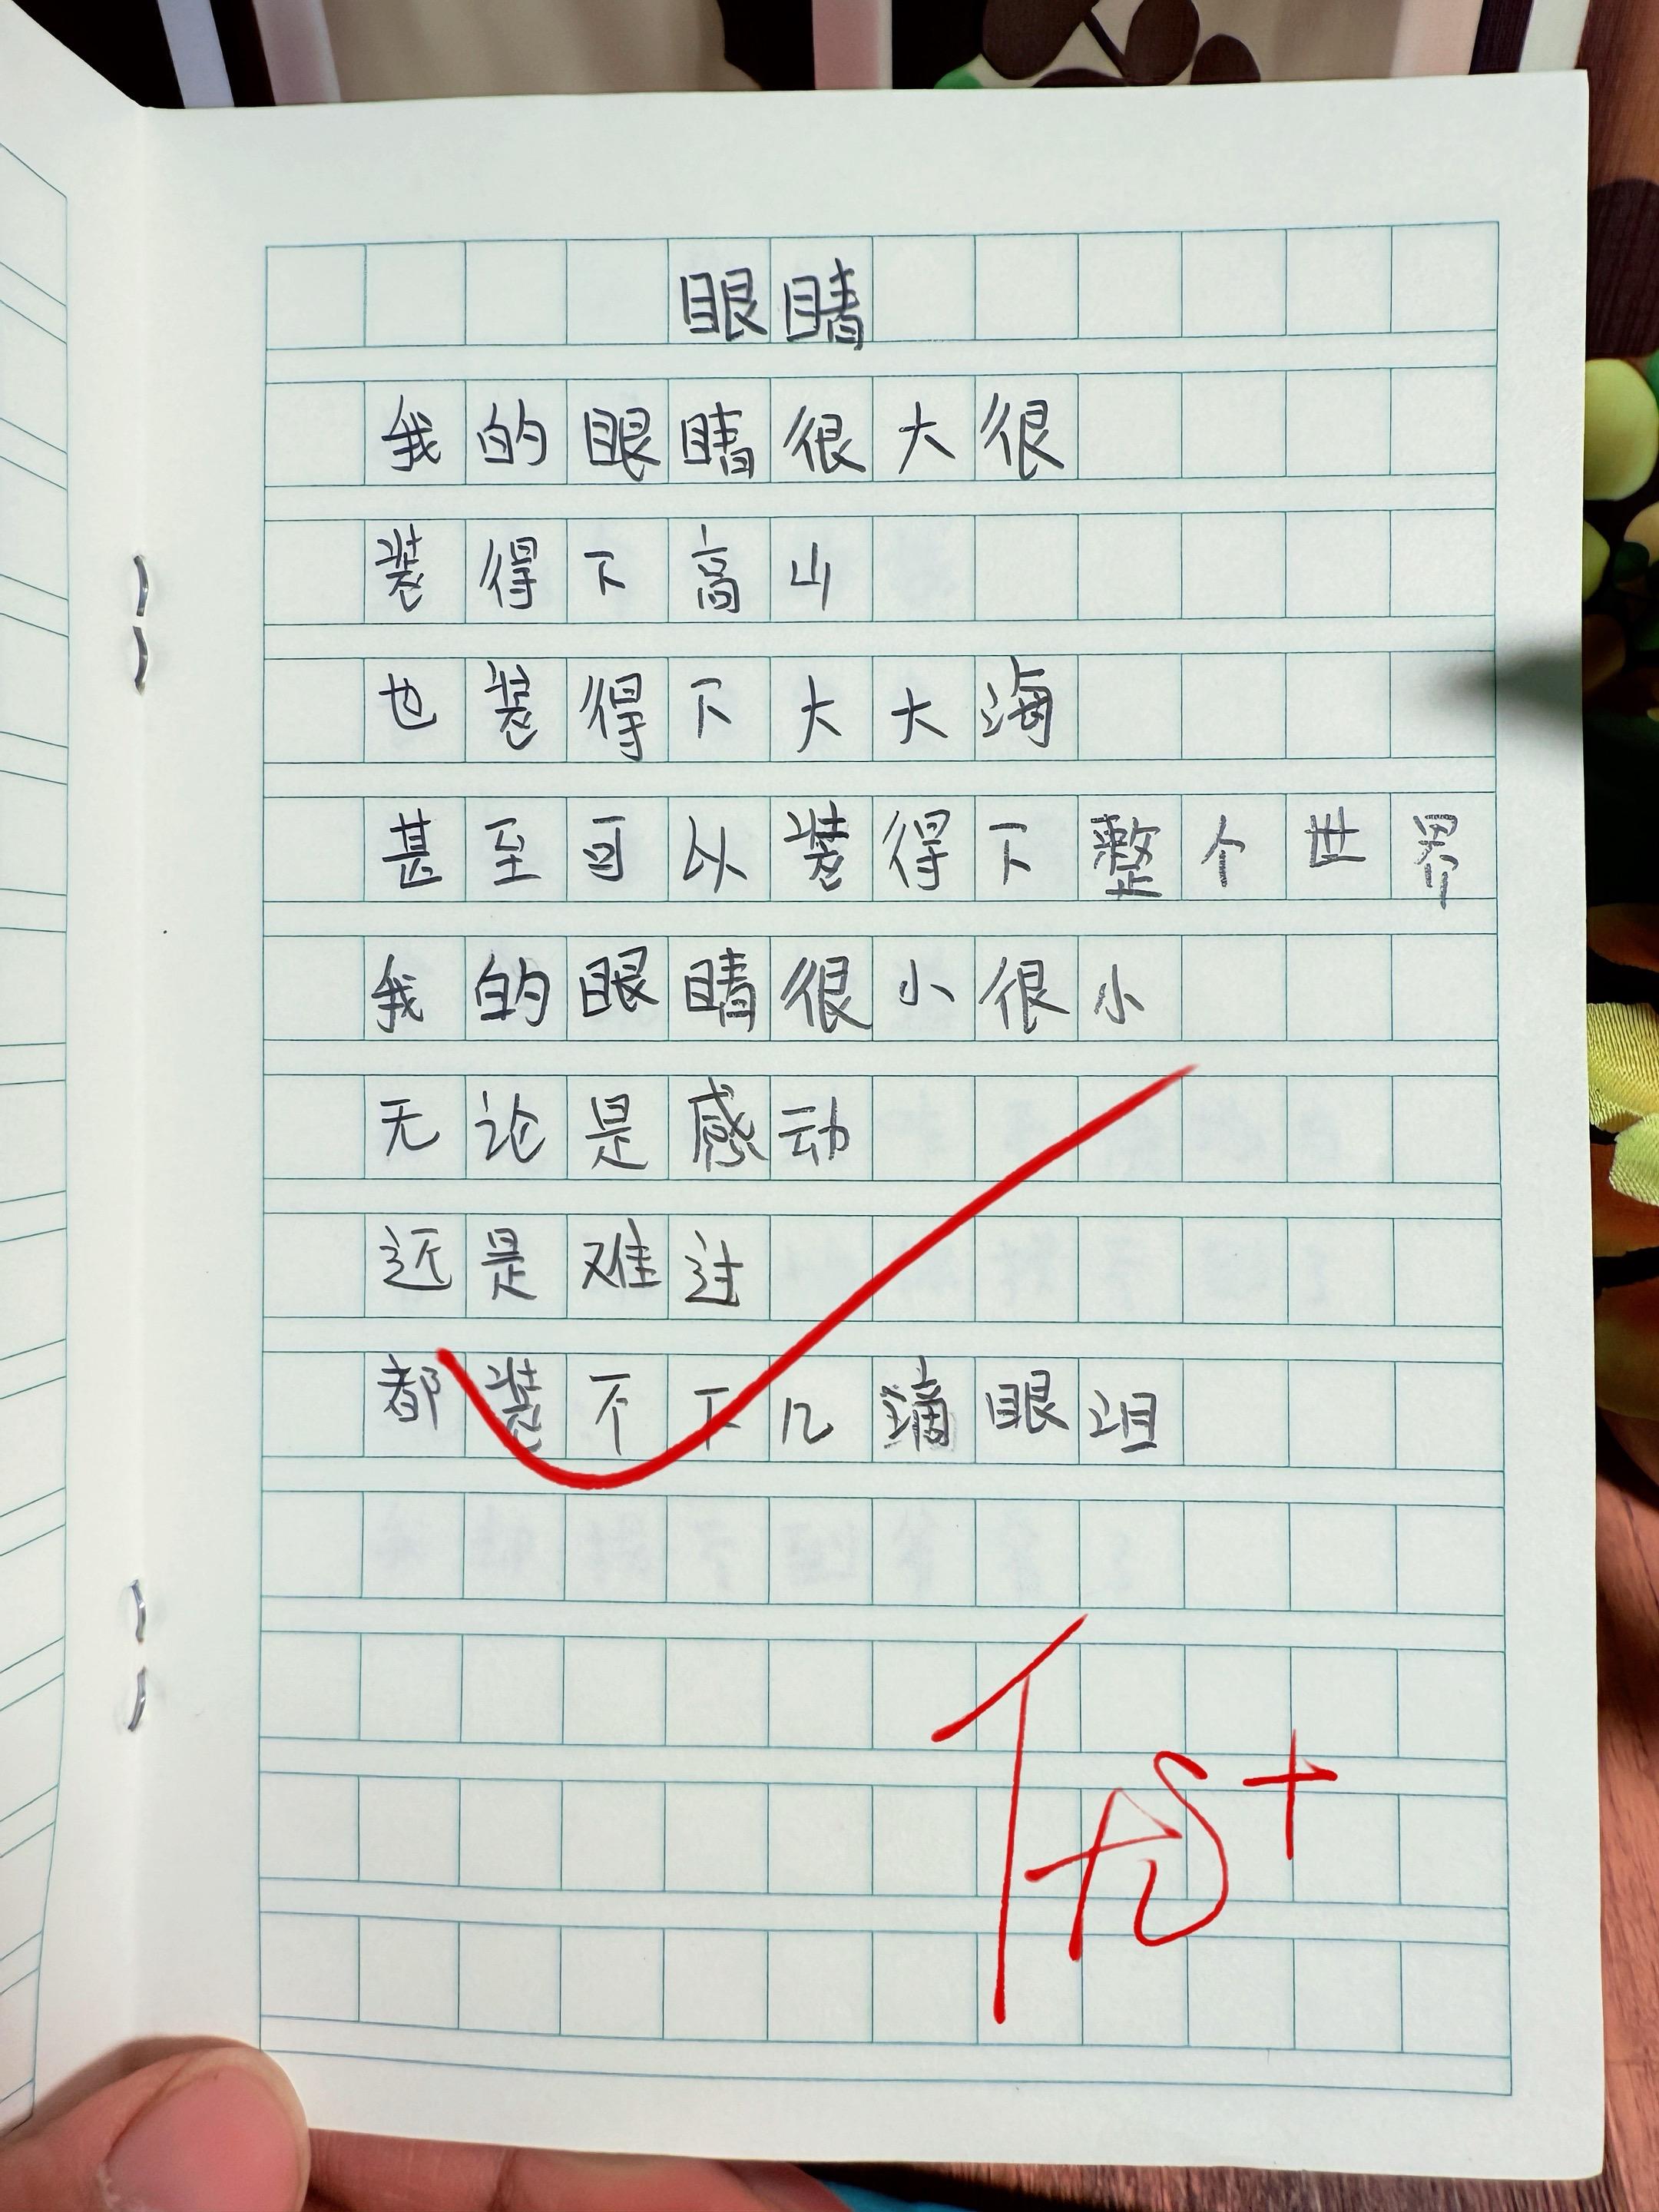 眼睛
我的眼睛很大很
装得下高山
也装得下大大海
甚至可以装得下整个世界
我的眼睛很小很小
无论是感动
还是难过
都装不下几滴眼泪